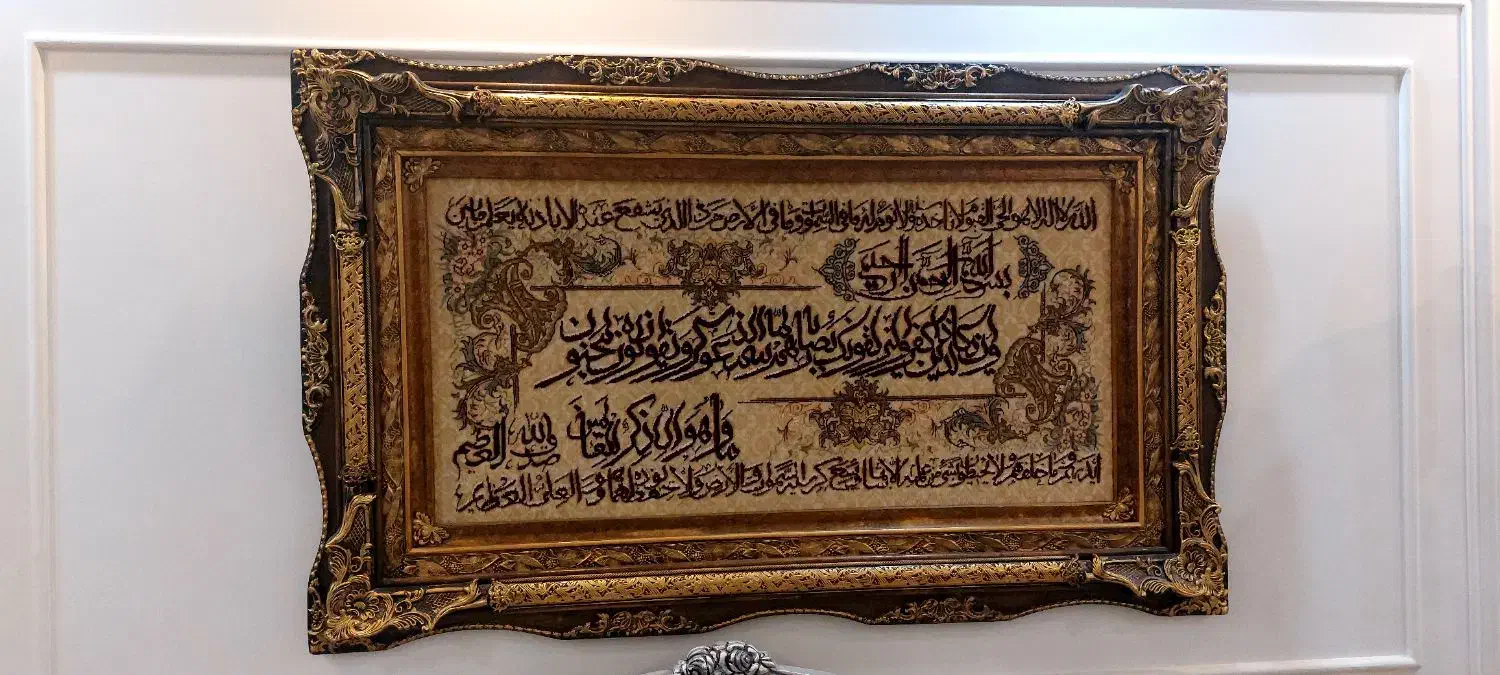 الله لا اله الا هو الحی القیوم لا تاخذه سنة ولا نوم له ما فی السموات وما فی الارض من ذا الذی یشفع عنده الا باذنه یعلم ما بین
بسم الله الرحمن الرحیم
وان یکاد الذین کفروا لیزلقونک بابصارهم لما سمعوا الذکر ویقولون انه لمجنون
وما هو الا ذکر للعالمین صدق الله العظیم
ایدیهم وما خلفهم ولا یحیطون بشیء من علمه الا بما شاء وسع کرسیه السموات والارض ولا یؤده حفظهما وهو العلی العظیم